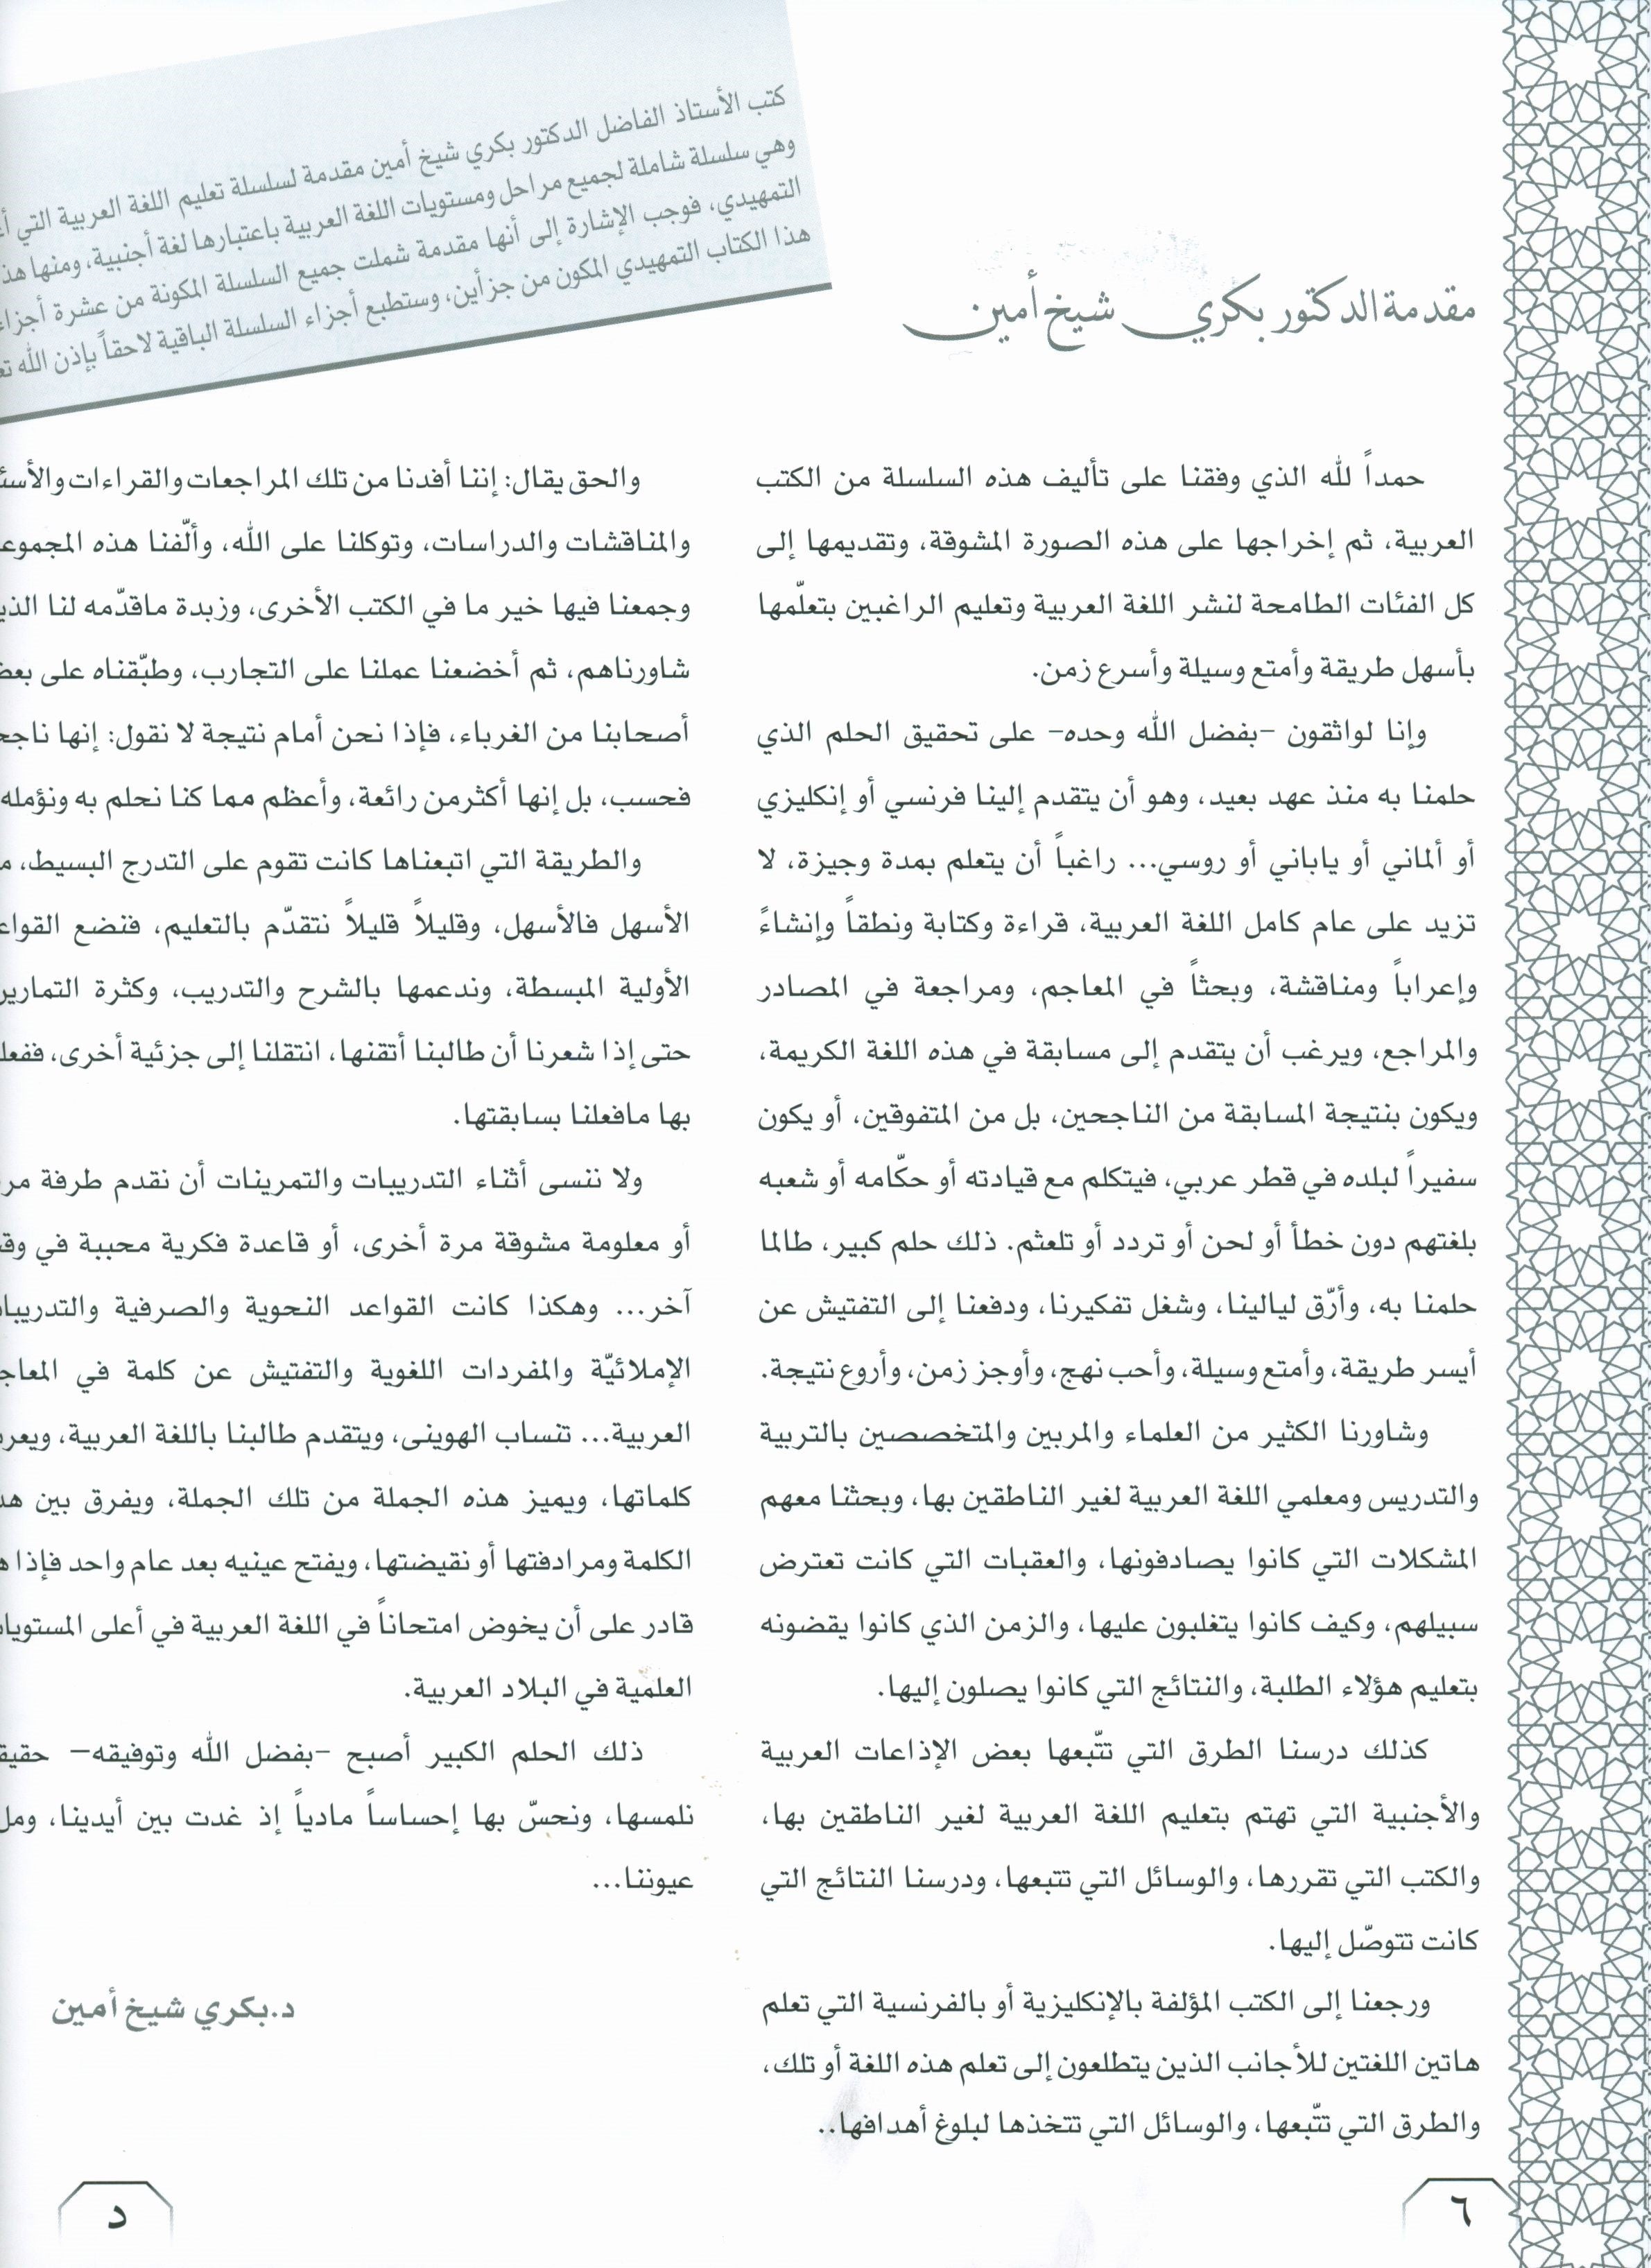 كتب الأستاذ الفاضل الدكتور بكري شيخ أمين مقدمة لسلسلة تعليم اللغة العربية التي
وهي سلسلة شاملة لجميع مراحل ومستويات اللغة العربية باعتبارها لغة أجنبية، ومنها
التمهيدي، فوجب الإشارة إلى أنها مقدمة شملت جميع السلسلة المكونة من عشرة
هذا الكتاب التمهيدي المكون من جزأين، وستطبع أجزاء السلسلة الباقية لاحقاً بإذن الله
مقدمة الدكتور بكري شيخ أمين
حمداً لله الذي وفقنا على تأليف هذه السلسلة من الكتب
العربية، ثم إخراجها على هذه الصورة المشوقة، وتقديمها إلى
كل الفئات الطامحة لنشر اللغة العربية وتعليم الراغبين بتعلّمها
بأسهل طريقة وأمتع وسيلة وأسرع زمن.
وإنا لواثقون -بفضل الله وحده- على تحقيق الحلم الذي
حلمنا به منذ عهد بعيد، وهو أن يتقدم إلينا فرنسي أو إنكليزي
أو ألماني أو ياباني أو روسي... راغباً أن يتعلم بمدة وجيزة، لا
تزيد على عام كامل اللغة العربية، قراءة وكتابة ونطقاً وإنشاءً
وإعراباً ومناقشة، وبحثاً في المعاجم، ومراجعة في المصادر
والمراجع، ويرغب أن يتقدم إلى مسابقة في هذه اللغة الكريمة،
ويكون بنتيجة المسابقة من الناجحين، بل من المتفوقين، أو يكون
سفيراً لبلده في قطر عربي، فيتكلم مع قيادته أو حكّامه أو شعبه
بلغتهم دون خطأ أو لحن أو تردد أو تلعثم. ذلك حلم كبير، طالما
حلمنا به، وأرّق ليالينا، وشغل تفكيرنا، ودفعنا إلى التفتيش عن
أيسر طريقة، وأمتع وسيلة، وأحب نهج، وأوجز زمن، وأروع نتيجة.
وشاورنا الكثير من العلماء والمربين والمتخصصين بالتربية
والتدريس ومعلمي اللغة العربية لغير الناطقين بها، وبحثنا معهم
المشكلات التي كانوا يصادفونها، والعقبات التي كانت تعترض
سبيلهم، وكيف كانوا يتغلبون عليها، والزمن الذي كانوا يقضونه
بتعليم هؤلاء الطلبة، والنتائج التي كانوا يصلون إليها.
كذلك درسنا الطرق التي تتّبعها بعض الإذاعات العربية
والأجنبية التي تهتم بتعليم اللغة العربية لغير الناطقين بها،
والكتب التي تقررها، والوسائل التي تتبعها، ودرسنا النتائج التي
كانت تتوصّل إليها.
ورجعنا إلى الكتب المؤلفة بالإنكليزية أو بالفرنسية التي تعلم
هاتين اللغتين للأجانب الذين يتطلعون إلى تعلم هذه اللغة أو تلك،
والطرق التي تتّبعها، والوسائل التي تتخذها لبلوغ أهدافها..
والحق يقال: إننا أفدنا من تلك المراجعات والقراءات
والمناقشات والدراسات، وتوكلنا على الله، وألّفنا هذه
وجمعنا فيها خير ما في الكتب الأخرى، وزبدة ماقدّمه لنا
شاورناهم، ثم أخضعنا عملنا على التجارب، وطبّقناه على
أصحابنا من الغرباء، فإذا نحن أمام نتيجة لا نقول: إنها
فحسب، بل إنها أكثرمن رائعة، وأعظم مما كنا نحلم به ونؤمله
والطريقة التي اتبعناها كانت تقوم على التدرج البسيط،
الأسهل فالأسهل، وقليلاً قليلاً نتقدّم بالتعليم، فنضع
الأولية المبسطة، وندعمها بالشرح والتدريب، وكثرة
حتى إذا شعرنا أن طالبنا أتقنها، انتقلنا إلى جزئية أخرى،
بها مافعلنا بسابقتها.
ولا ننسى أثناء التدريبات والتمرينات أن نقدم طرفة
أو معلومة مشوقة مرة أخرى، أو قاعدة فكرية محببة في
آخر... وهكذا كانت القواعد النحوية والصرفية
الإملائيّة والمفردات اللغوية والتفتيش عن كلمة في
العربية... تنساب الهوينى، ويتقدم طالبنا باللغة العربية،
كلماتها، ويميز هذه الجملة من تلك الجملة، ويفرق بين
الكلمة ومرادفتها أو نقيضتها، ويفتح عينيه بعد عام واحد فإذا
قادر على أن يخوض امتحاناً في اللغة العربية في أعلى
العلمية في البلاد العربية.
ذلك الحلم الكبير أصبح -بفضل الله وتوفيقه-
نلمسها، ونحسّ بها إحساساً مادياً إذ غدت بين أيدينا،
عيوننا...
د.بكري شيخ أمين
٦
د